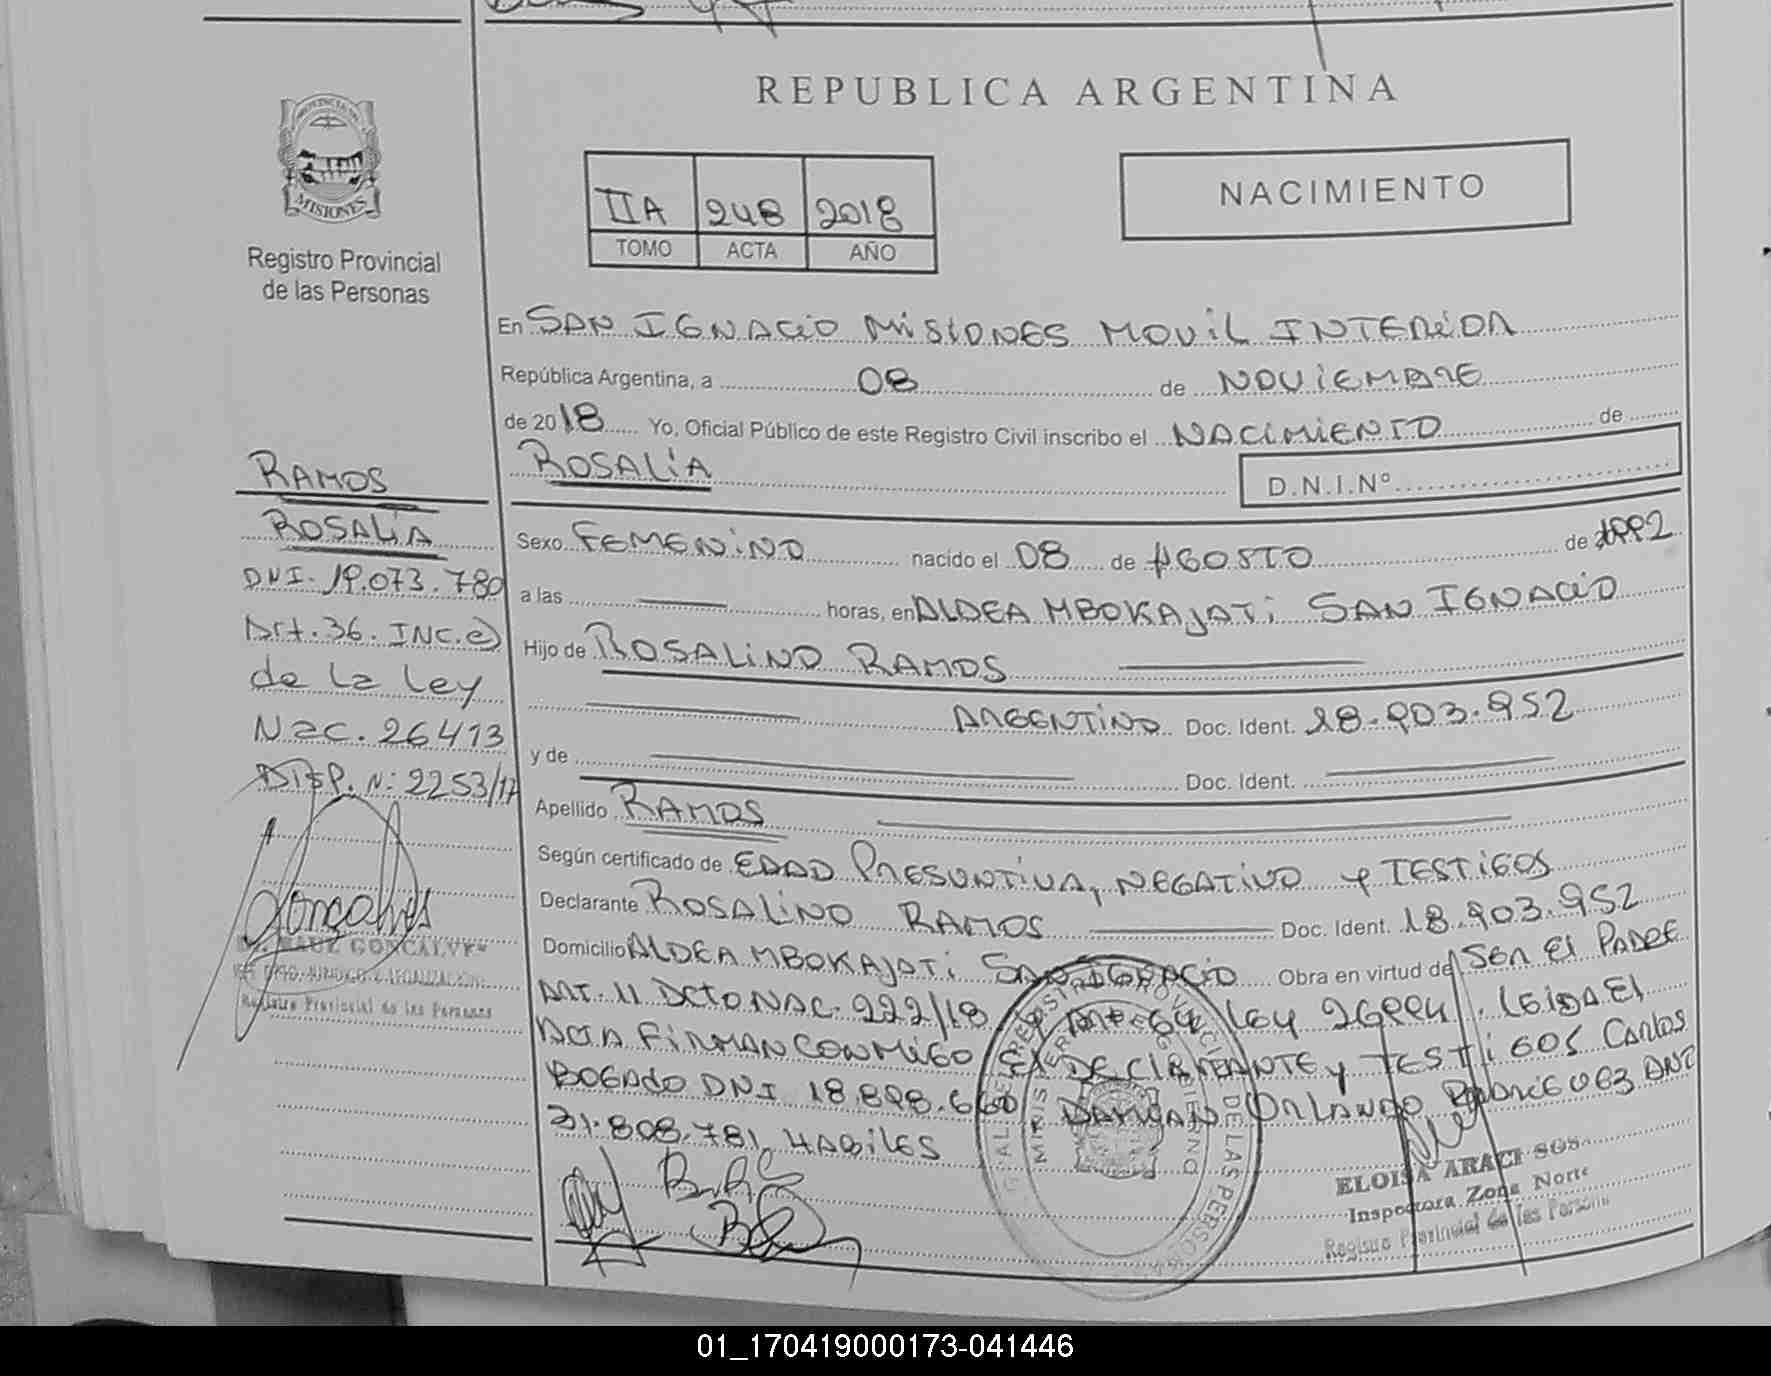 REPUBLICA ARGENTINA
PROVINCIA DE
MISIONES
Registro Provincial
de las Personas
IIA 248 2018
TOMO ACTA AÑO
NACIMIENTO
En SAN IGNACIO MISIONES MOVIL INTERIOR
República Argentina, a 08 de NOVIEMBRE
de 2018 Yo, Oficial Público de este Registro Civil inscribo el NACIMIENTO de
ROSALIA D.N.I.Nº
Sexo FEMENINO nacido el 08 de AGOSTO de 1992
a las horas, en ALDEA MBOKAJATI SAN IGNACIO
Hijo de ROSALINO RAMOS
ARGENTINO Doc. Ident. 18.903.952
y de Doc. Ident.
Apellido RAMOS
Según certificado de EDAD PRESUNTIVA, NEGATIVO y TESTIGOS
Declarante ROSALINO RAMOS Doc. Ident. 18.903.952
Domicilio ALDEA MBOKAJATI SAN IGNACIO Obra en virtud de SER El PADRE
ART. 11 DCTO NAC. 222/18 y ART 64 LEY 26994. LEIDA El
ACTA FIRMAN CONMIGO El DECLARANTE y TESTIGOS CARLOS
BOGADO DNI 18.898.660 ORLANDO RODRIGUEZ DNI
31.808.781 HABILES
RAMOS
ROSALIA
DNI. 19.073.780
Art. 36. INC. e)
de la Ley
Nac. 26413
DISP. N: 2253/17
Goncalves
RAUL GONCALVES
Registro Provincial de las Personas
ELOISA ARACI SOSA
Inspectora Zona Norte
Registro Provincial de las Personas
01_170419000173-041446